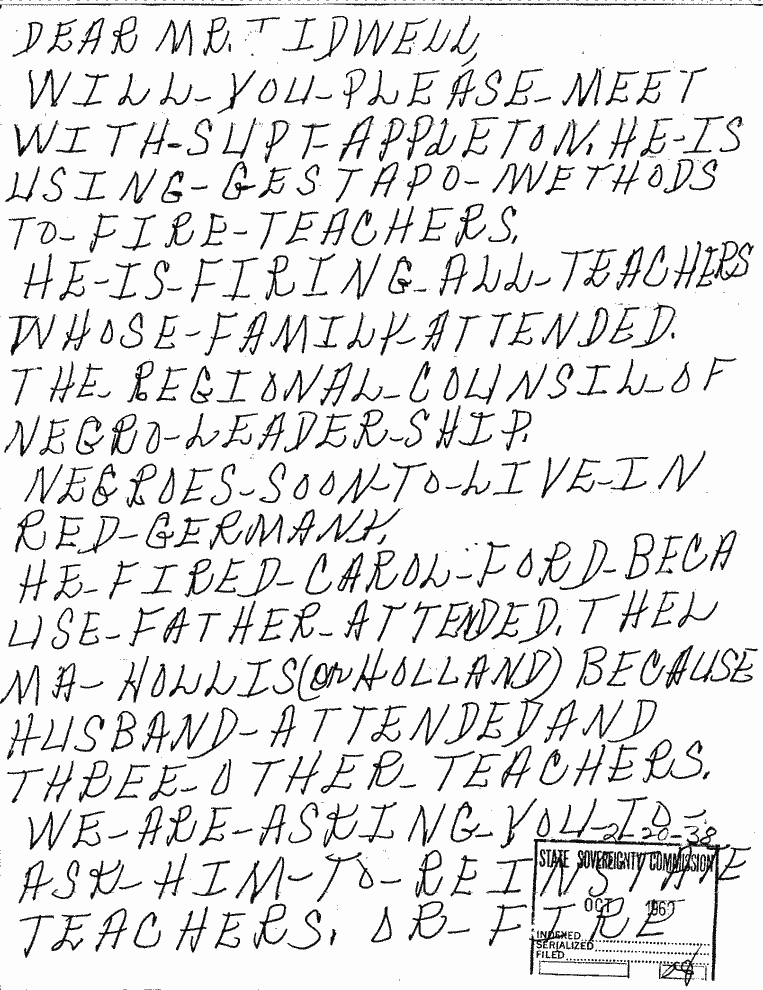 DEAR MR. TIDWELL,
WILL-YOU-PLEASE-MEET
WITH-SUPT-APPLETON. HE-IS
USING-GESTAPO-METHODS
TO-FIRE-TEACHERS.
HE-IS-FIRING-ALL-TEACHERS
WHOSE-FAMILY-ATTENDED.
THE-REGIONAL-COUNSIL-OF
NEGRO-LEADER-SHIP.
NEGROES-SOON-TO-LIVE-IN
RED-GERMANY.
HE-FIRED-CAROL-FORD-BECA
USE-FATHER-ATTENDED. THEL
MA-HOLLIS(or HOLLAND) BECAUSE
HUSBAND-ATTENDED AND
THREE-OTHER-TEACHERS.
WE-ARE-ASKING-YOU-TO-
2-20-38
ASK-HIM-TO-REINSTATE
STATE SOVEREIGNTY COMMISSION
TEACHERS. OR-FIRE
OCT 1960
INDEXED
SERIALIZED
FILED